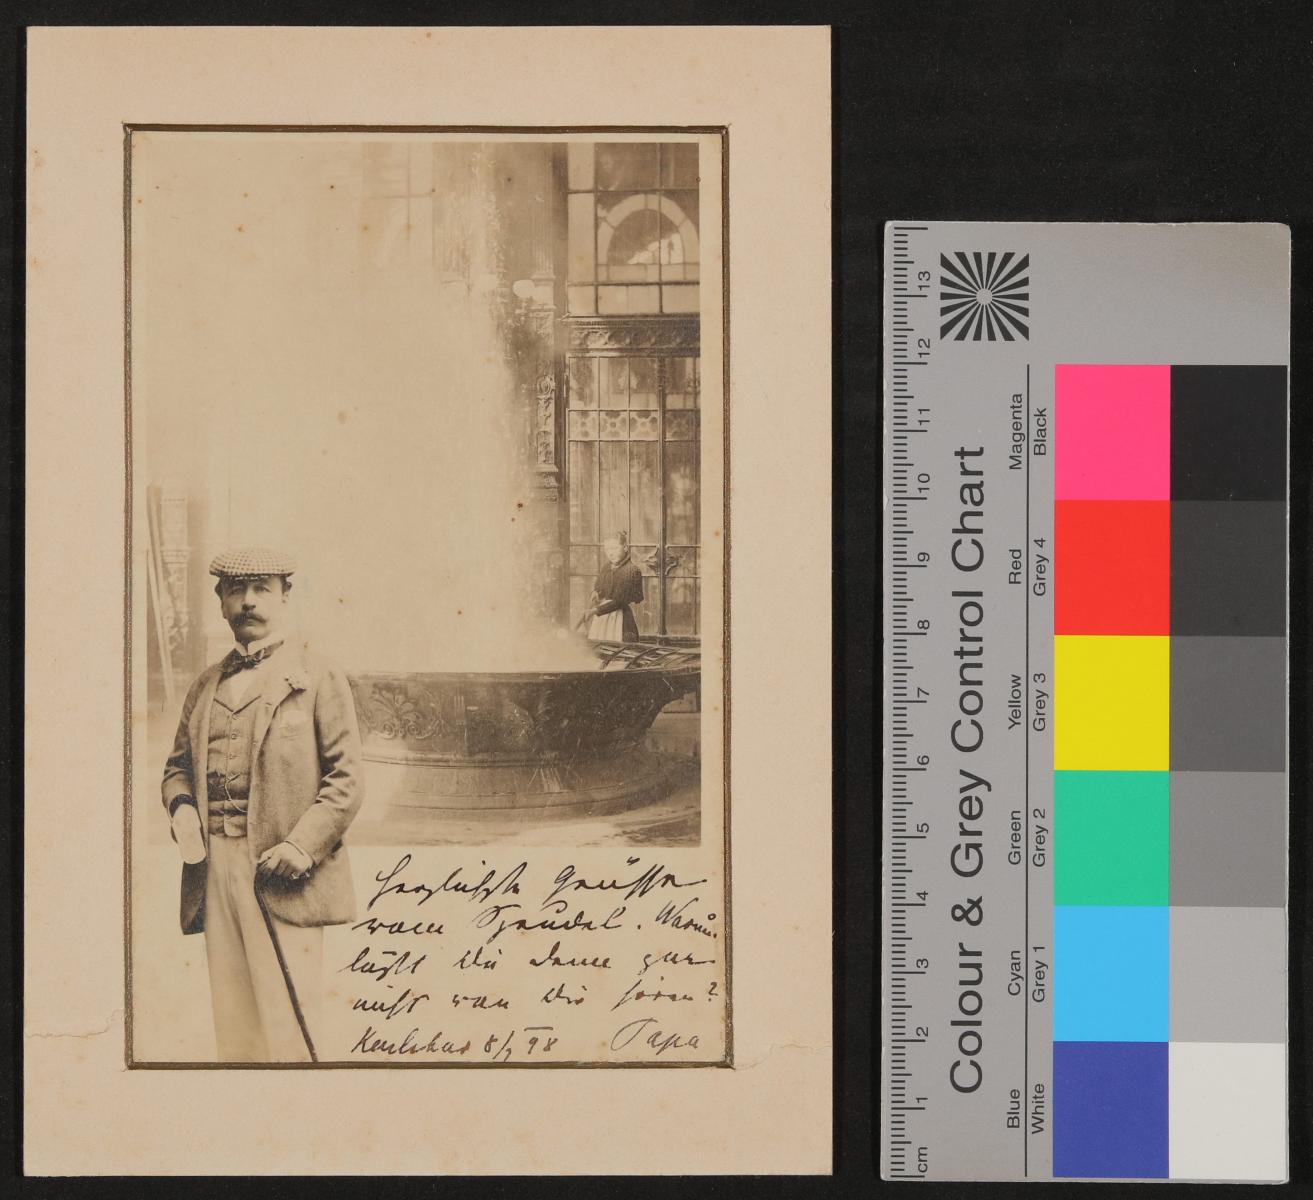 Herzlichste Grüsse
vom Sprudel. Warum
läßt Du denn gar
nicht von Dir hören?
Karlsbad 8/7 98 Papa
Colour & Grey Control Chart
Magenta
Red
Yellow
Green
Cyan
Blue
Black
Grey 4
Grey 3
Grey 2
Grey 1
White
13
12
11
10
9
8
7
6
5
4
3
2
1
cm